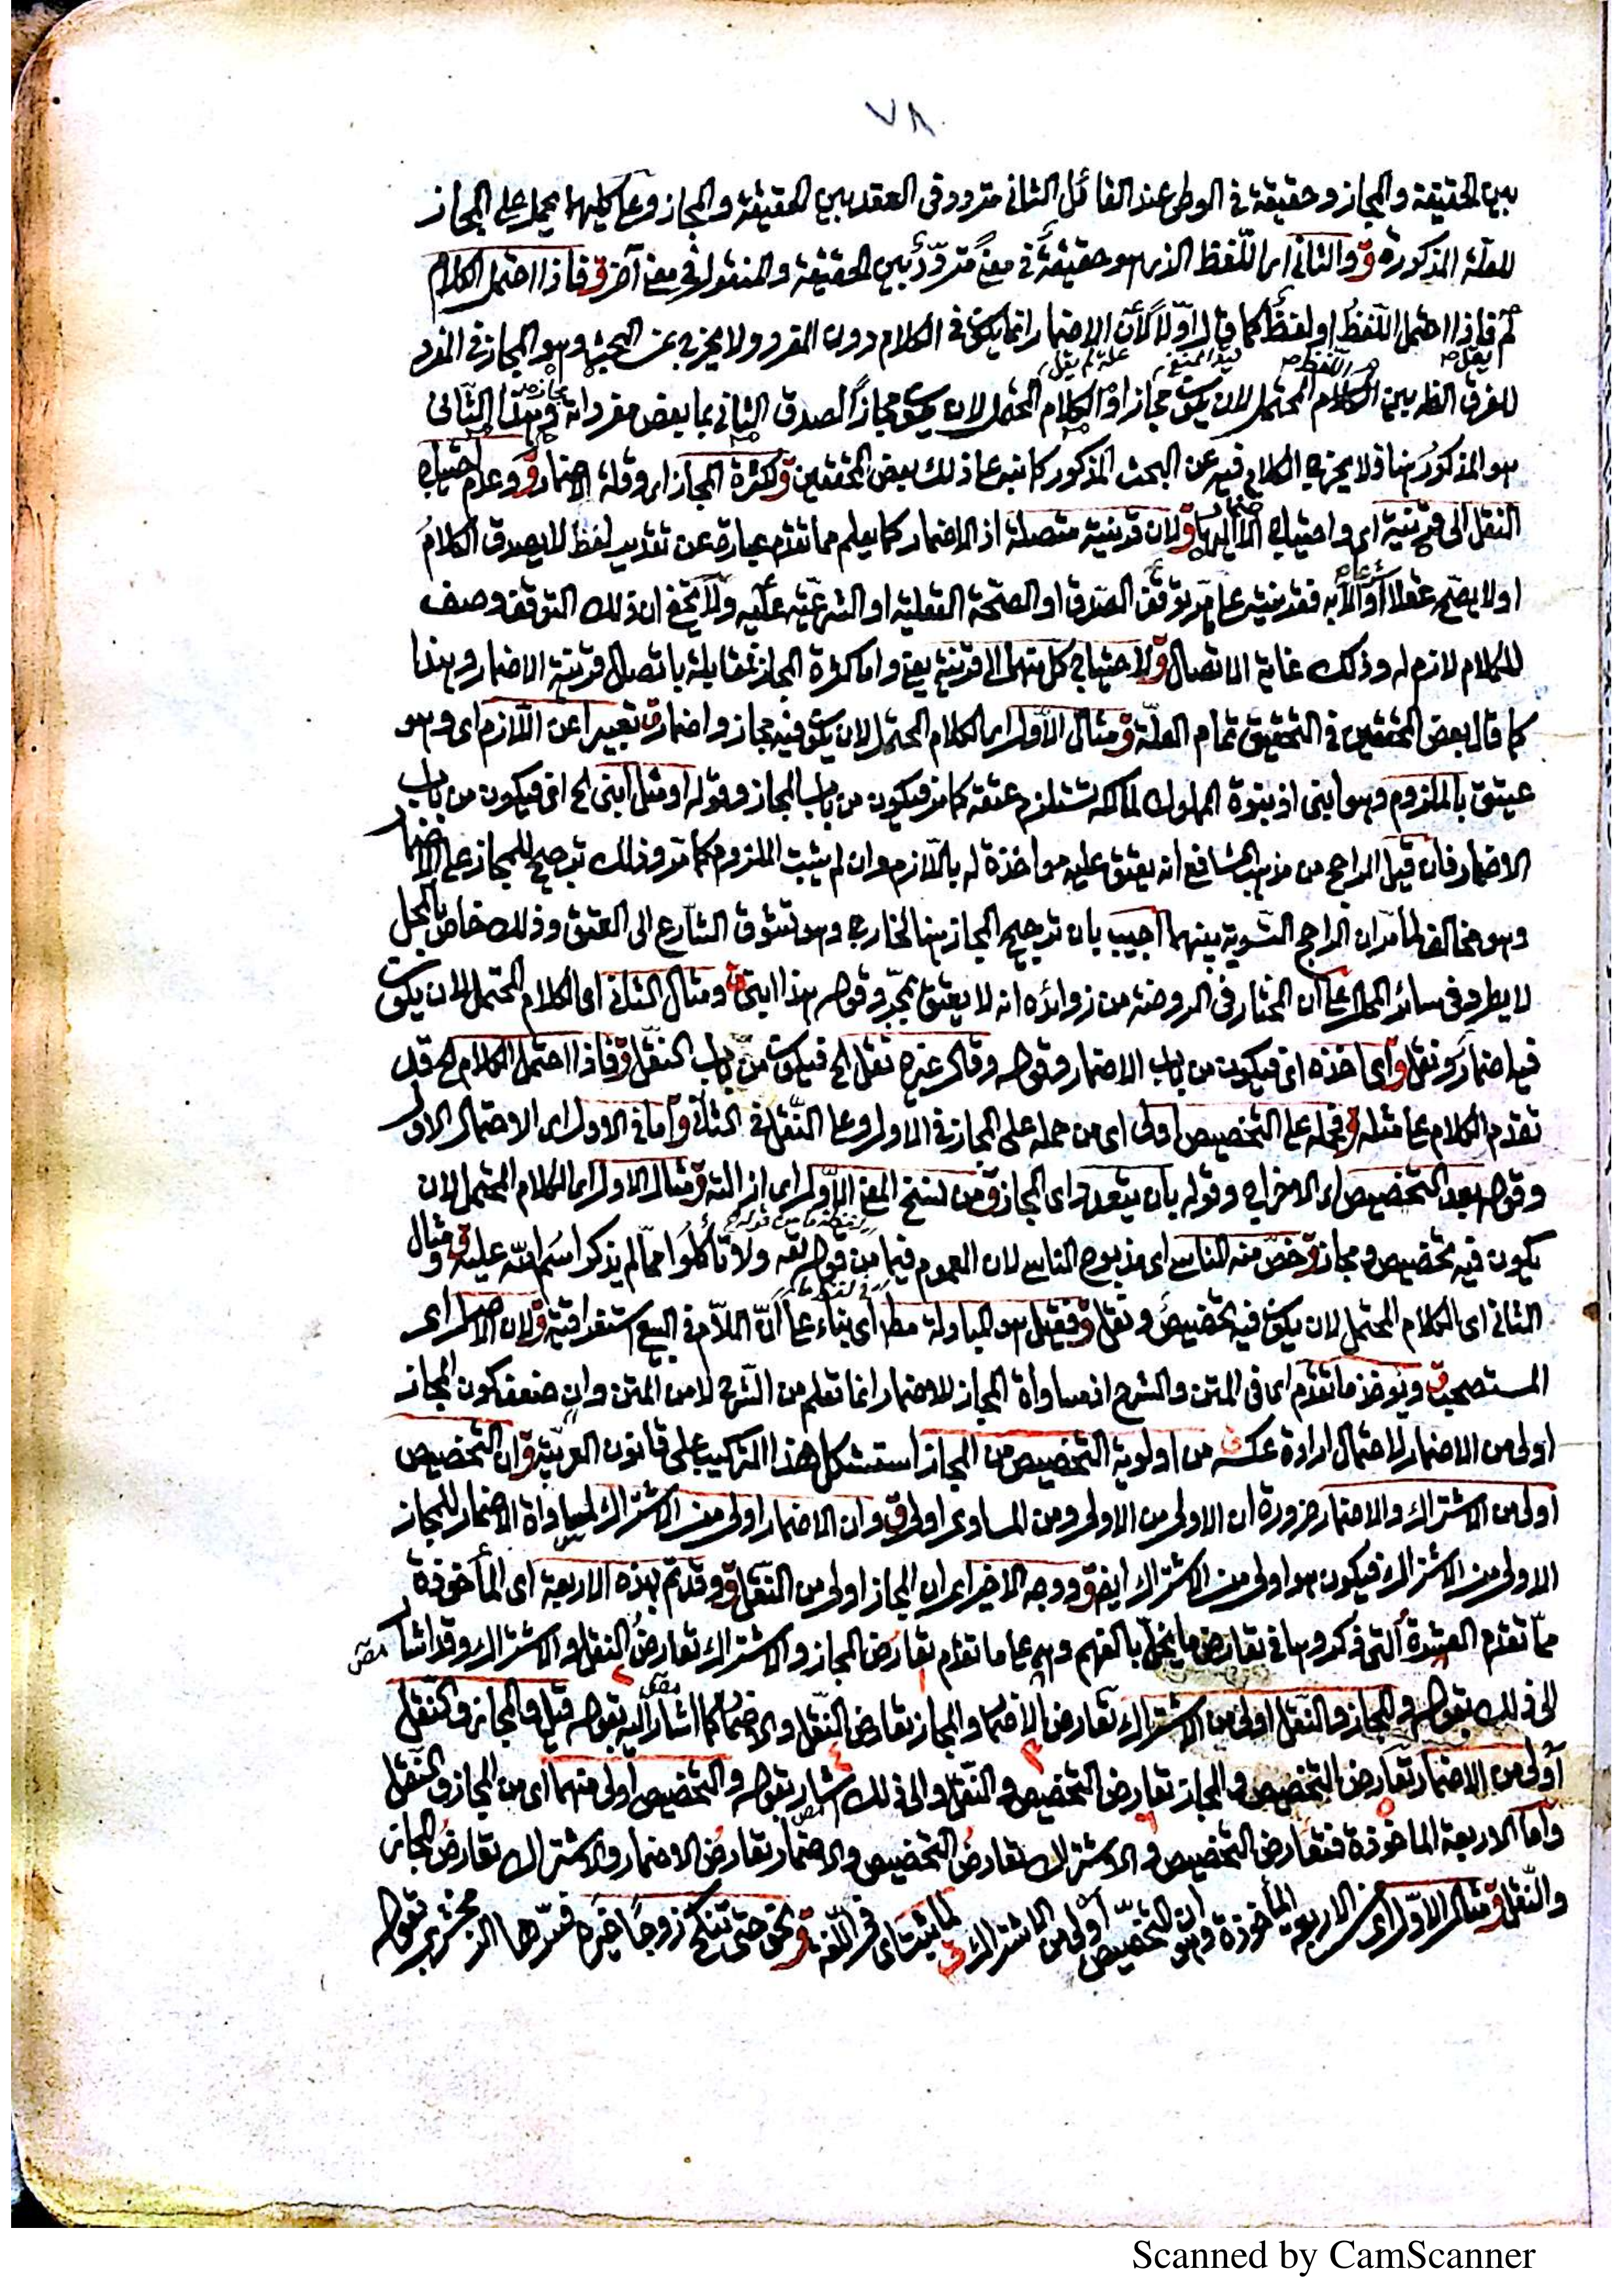 ٧٨
بين الحقيقة والمجاز وحقيقة في الوطئ عند القائل الثاني متردد في العقد بين الحقيقة والمجاز وعلى كليهما يحمل على المجاز
للعلة المذكورة ق والثاني اى اللفظ الذى هو حقيقة في معنى متردد بين الحقيقة والمنقول في معنى آخر ق فاذا احتمل الكلام
لم فاذا احتمل اللفظ او لفظ كما قال اولا لأن الاضمار انما يكون في الكلام دون المفرد ولا يخرج عن البحث وهو المجاز في المفرد
للفرق الظ بين الكلام المحتمل لان يكون مجازا والكلام المحتمل لان يكون مجازا لصدق الثاني بما بعض مفرداته وهذا الثاني
هو المذكور هنا فلا يخرج الكلام فيه عن البحث المذكور كما نبه على ذلك بعض المحققين ق لكثرة المجاز اى وقلة الاضمار ق وعدم احتياج
النقل الى قرينة اى واحتياج الاضمار اليها ق لان قرينة متصلة اذ الاضمار كما يعلم مما تقدم عبارة عن تقدير لفظ لا يصدق الكلام
او لا يصح عقلا او شرعا الا به فقرينته على ما مر توقف الصدق او الصحة العقلية او الشرعية عليه ولا يخفى ان ذلك التوقف وصف
للكلام لازم له وذلك غاية الاتصال ق لاحتياج كل منهما الى قرينة يعنى واما كثرة المجاز فمقابلة باتصال قرينة الاضمار وهذا
كما قال بعض المحققين في التحقيق تمام العلة ق مثال الاول اى الكلام المحتمل لان يكون فيه مجاز واضمار ق تعبيرا عن اللازم اى وهو
عيتق بالملزوم وهو ابنى اذ بنوة المملوك لمالكه تستلزم عتقه كما مر فيكون من باب المجاز وقوله او مثل ابنى الخ اى فيكون من باب
الاضمار فان قيل الراجح من مذهب الشافعى انه يعتق عليه مواخذة له باللازم وان لم يثبت الملزوم كما مر وذلك ترجيح للمجاز على الاضمار
وهو مخالف لما مر ان الراجح التسوية بينهما اجيب بان ترجيح المجاز هنا لخارج وهو تشوق الشارع الى العتق وذلك خاص بالمحل
لا يطرد في سائر المحال على ان المختار في الروضة من زوائده انه لا يعتق بمجرد قوله هذا ابنى ق ومثال الثاني اى الكلام المحتمل لان يكون
فيه اضمار ونقل ق اى اخذه اى فيكون من باب الاضمار وقوله وقال غيره نقل الخ فيكون من باب النقل ق فاذا احتمل الكلام الخ قد
تقدم الكلام على مثله ق فحمله على التخصيص اولى اى من حمله على المجاز في الاول وعلى النقل في الثاني ق اما في الاول اى الاحتمال الاول
وقوله بعد التخصيص اى الاخراج وقوله بان يتعدد اى المجاز ق من نسخ المعنى الاول اى ازالته ق مثال الاول اى الكلام المحتمل لان
يكون فيه تخصيص ومجاز ق خص منه الناسى اى مذبوح الناسى لان العموم فيما من قوله تعه ولا تأكلوا مما لم يذكر اسم الله عليه ق ومثال
الثاني اى الكلام المحتمل لان يكون فيه تخصيص ونقل ق فقيل هو المبادلة مط اى بناء على ان اللام في البيع استغراقية ق لان الاصل اى
المستصحب ق ويؤخذ مما تقدم اى في المتن والشرح اذ مساواة المجاز للاضمار انما تعلم من الشرح لا من المتن وان ضعف كون المجاز
اولى من الاضمار لاحتمال ارادة عكسه ق من اولوية التخصيص من المجاز استشكل هذا التركيب على قانون العربية ق ان التخصيص
اولى من الاشتراك والاضمار ضرورة ان الاولى من الاولى ومن المساوى اولى ق وان الاضمار اولى من الاشتراك لمساواة الاضمار للمجاز
الاولى من الاشتراك فيكون هو اولى من الاشتراك ايضا ق ووجه الاخير اى ان المجاز اولى من النقل ق وقد تم بهذه الاربعة اى المأخوذة
مما تقدم العشرة التى ذكروها في تعارض ما يخل بالفهم وهى على ما تقدم تعارض المجاز والاشتراك تعارض النقل والاشتراك وقد اشار المص
الى ذلك بقوله والمجاز والنقل اولى من الاشتراك تعارض الاضمار والمجاز تعارض النقل والاضمار كما اشار المص اليه بقوله قيل والمجاز والنقل
أولى من الاضمار تعارض التخصيص والمجاز تعارض التخصيص والنقل والى ذلك اشار بقوله والتخصيص اولى منهما اى من المجاز والنقل
واما الاربعة المأخوذة فتعارض التخصيص والاشتراك تعارض التخصيص والاضمار تعارض الاضمار والاشتراك تعارض المجاز
والنقل ق مثال الاول اى من الاربعة المأخوذة وهو ان التخصيص اولى من الاشتراك ق لما يثبت اى في اللغة ق نحو حتى تنكح زوجا غيره فسرها الزمخشرى بقوله
Scanned by CamScanner